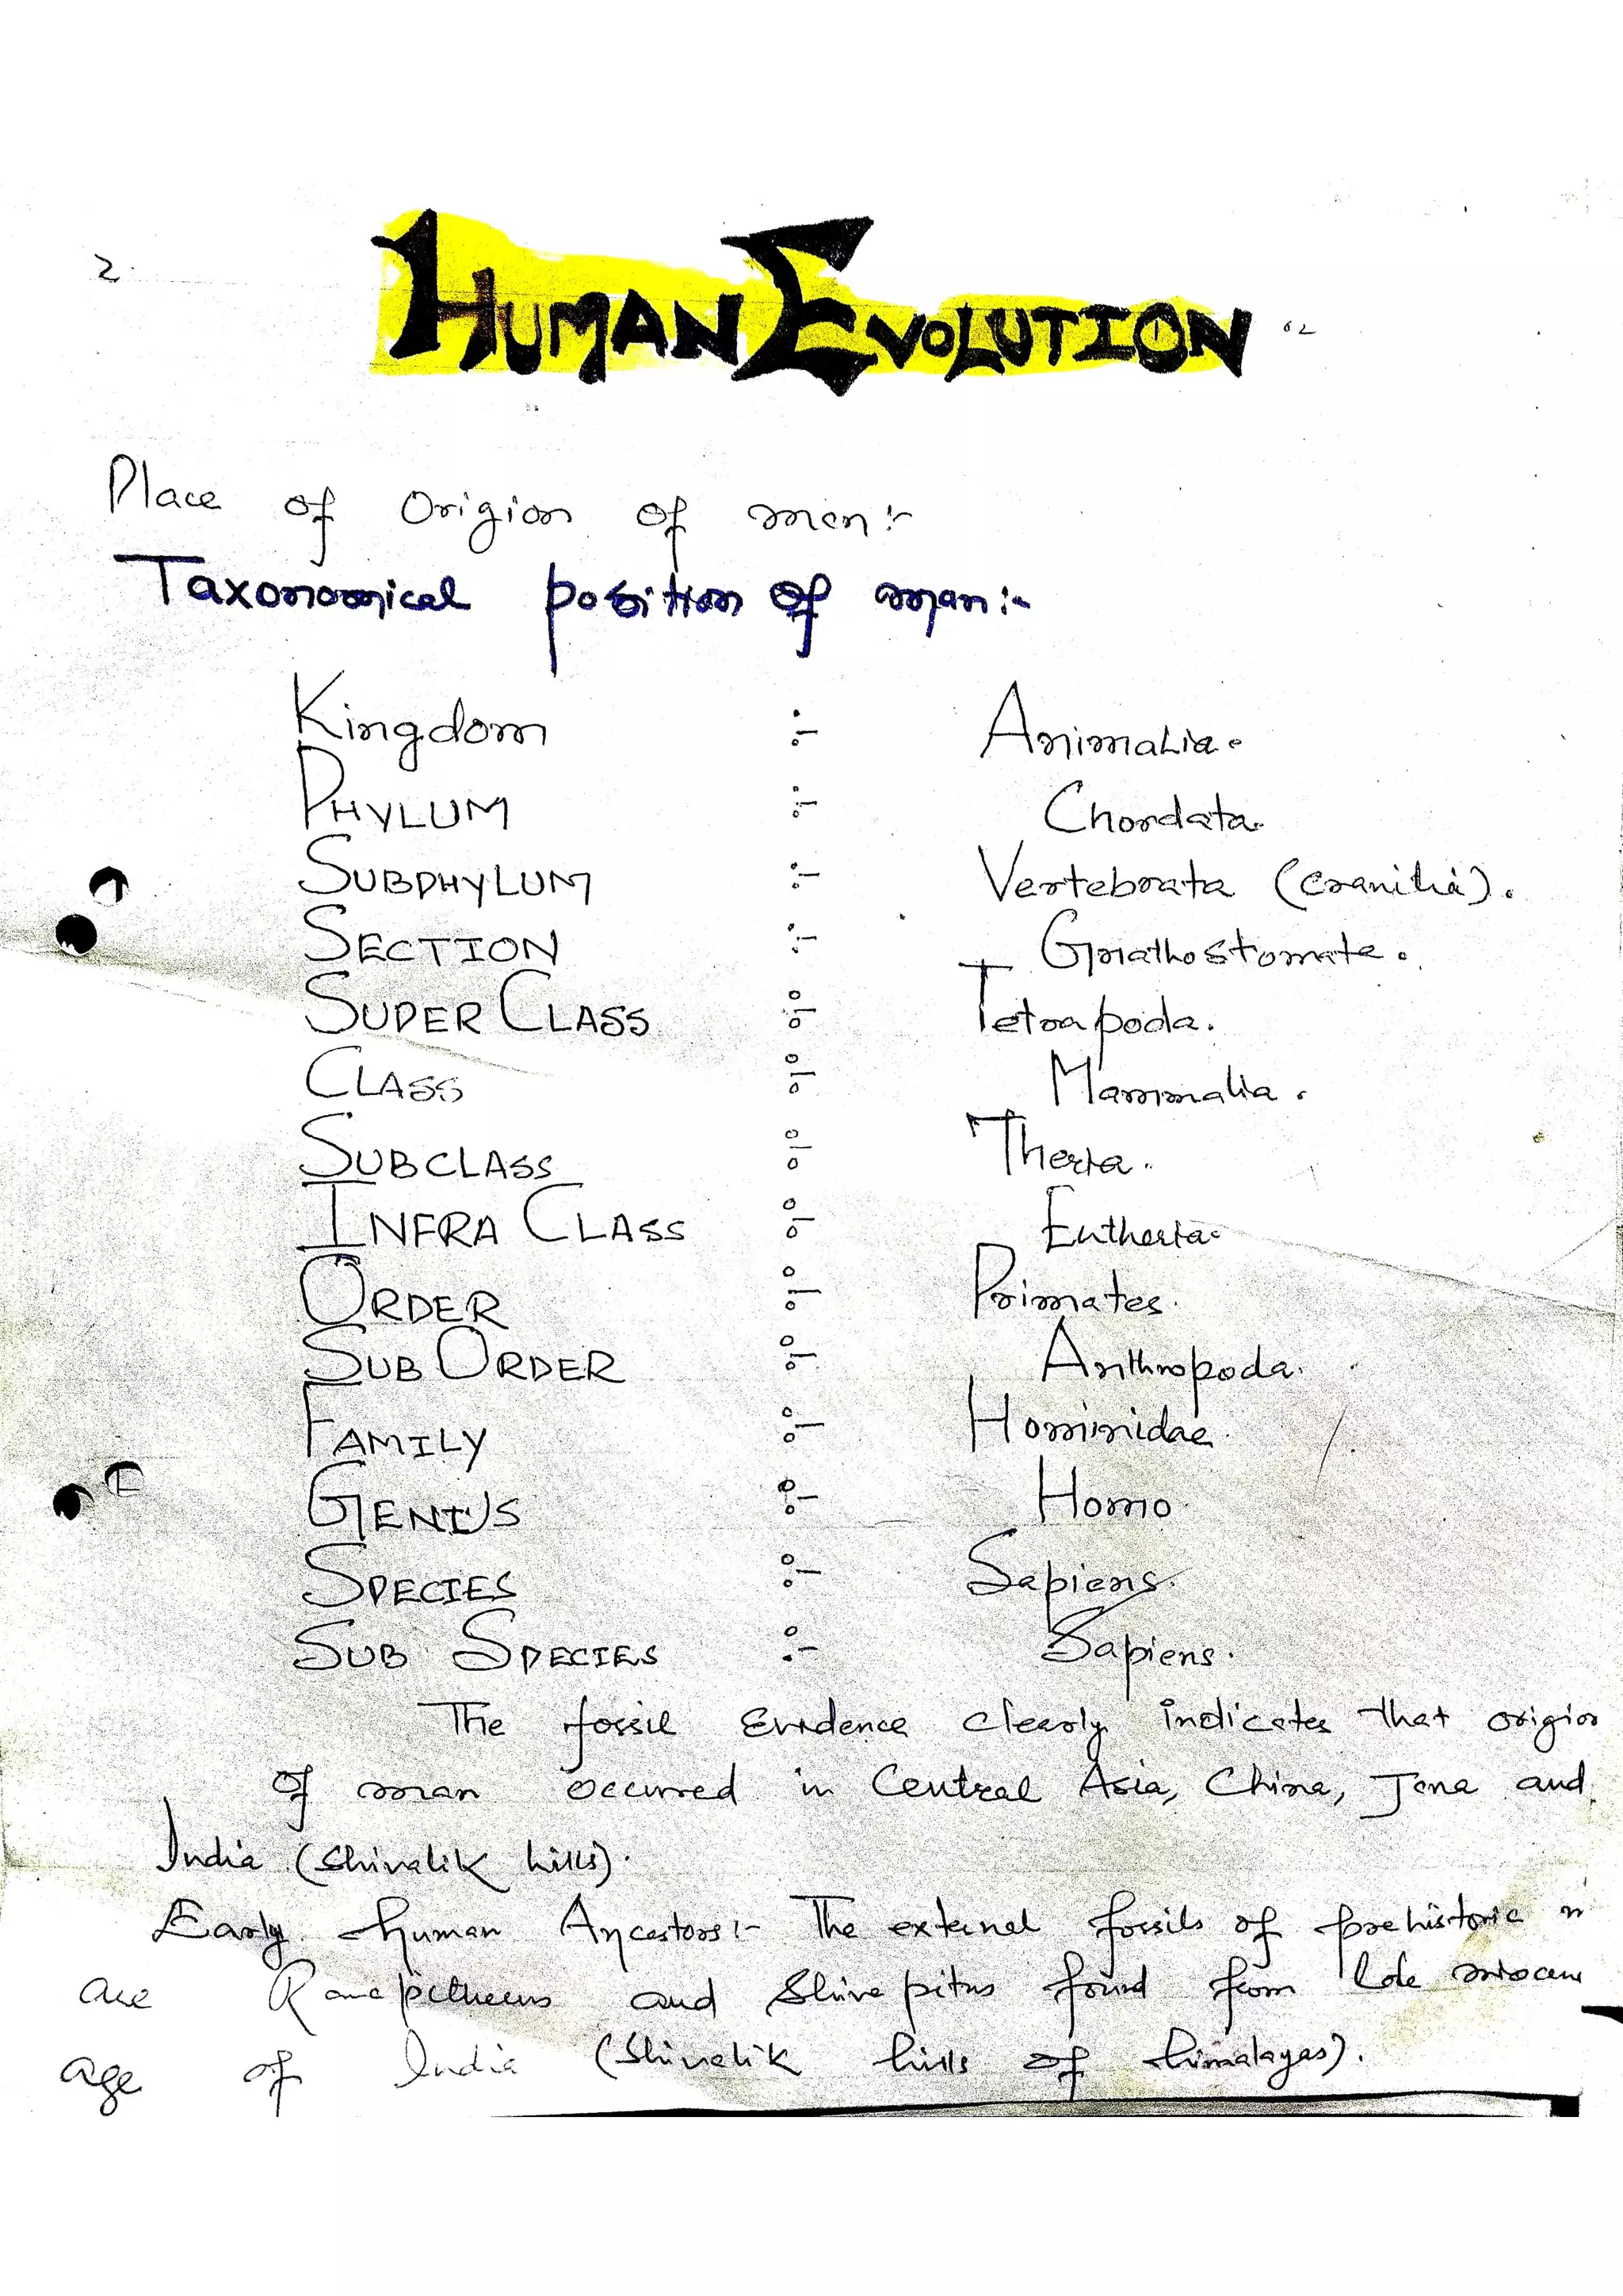 2.
HUMAN EVOLUTION
Place of Origion of men:-
Taxonomical position of man:-
Kingdom :- Animalia.
PHYLUM :- Chordata.
SUBPHYLUM :- Vertebrata (Cranitia).
SECTION :- Gnathostomate.
SUPER CLASS :- Tetrapoda.
CLASS :- Mammalia.
SUBCLASS :- Theria.
INFRA CLASS :- Eutheria.
ORDER :- Primates.
SUB ORDER :- Anthropoda.
FAMILY :- Hominidae.
GENIUS :- Homo.
SPECIES :- Sapiens.
SUB SPECIES :- Sapiens.
The fossil Evidence clearly indicates that origion
of man occurred in Central Asia, China, Java and
India (Shivalik hills).
Early human Ancestors:- The external fossils of prehistoric
are Ramapitheus and Shivapitus found from late miocene
age of India (Shivalik hills of himalayas).